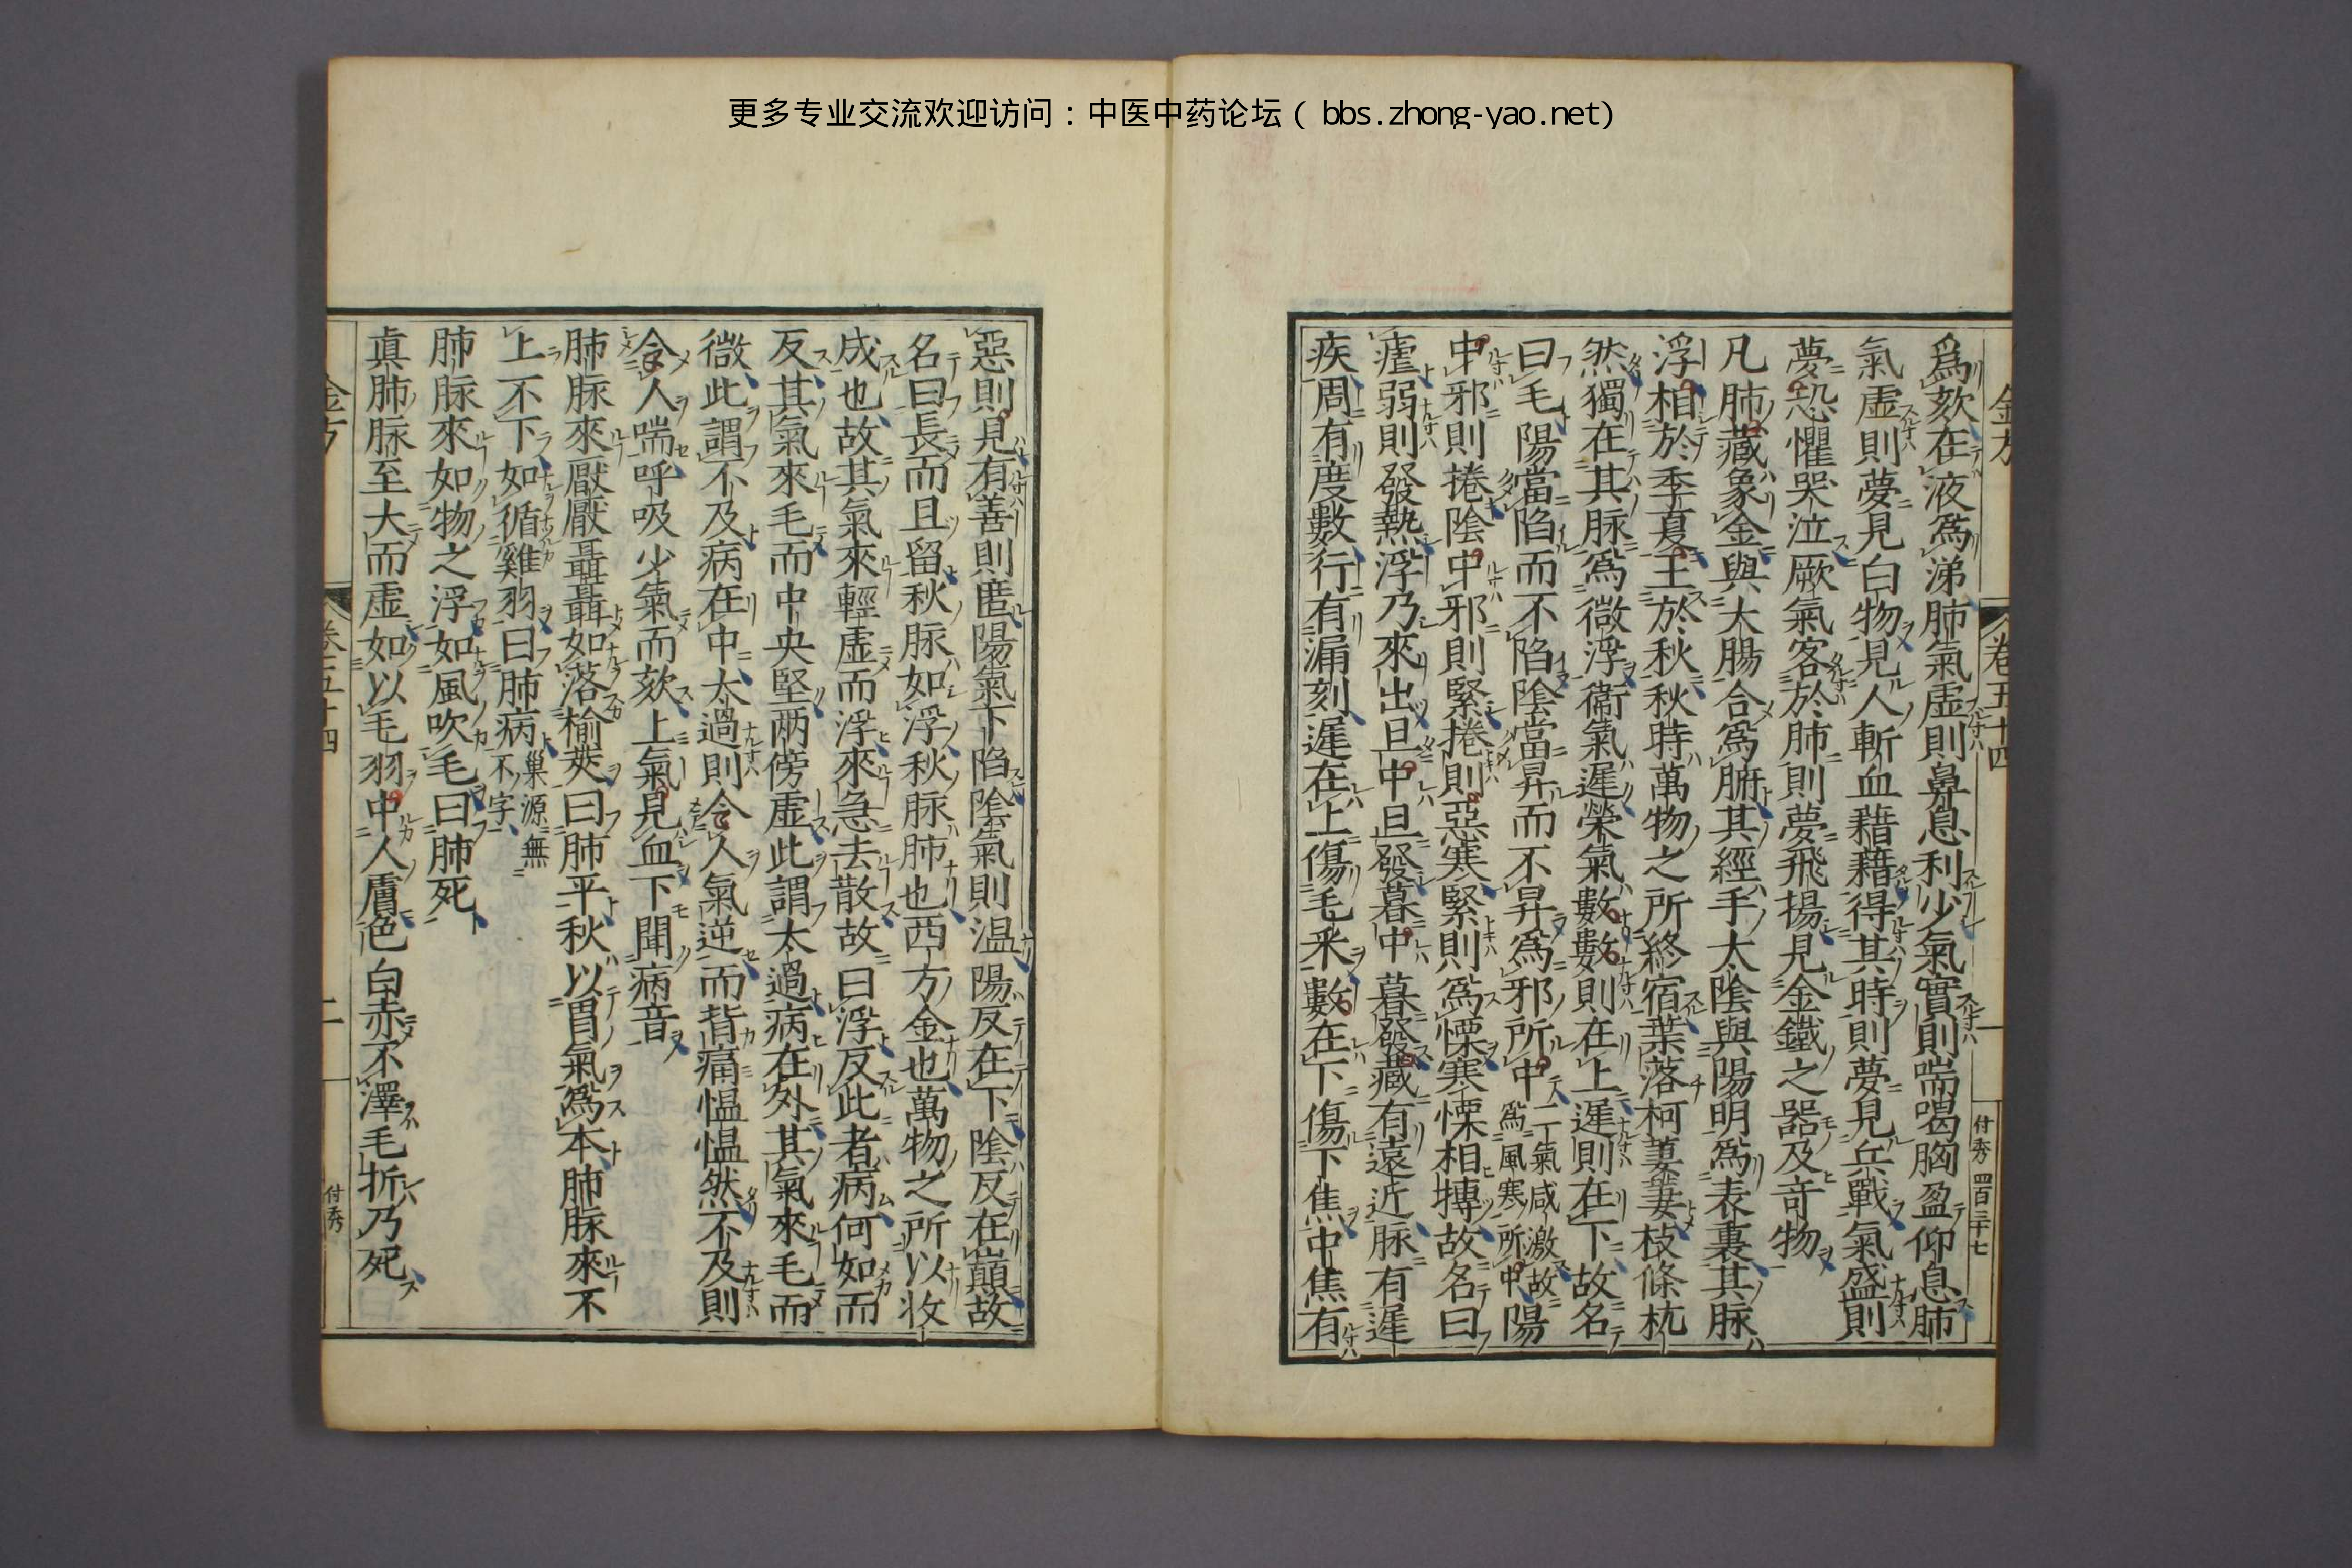 更多专业交流欢迎访问：中医中药论坛（bbs.zhong-yao.net）
金方 卷五十四 付秀 四百三十七
爲欬在液爲涕肺氣虛則鼻息利少氣實則喘喝胸盈仰息肺
氣虛則夢見白物見人斬血藉藉得其時則夢見兵戰氣盛則
夢恐懼哭泣厥氣客於肺則夢飛揚見金鐵之器及竒物
凡肺藏象金與大腸合爲腑其經手太陰與陽明爲表裏其脉
浮相於季夏王於秋秋時萬物之所終宿葉落柯萋萋枝條杌
然獨在其脉爲微浮衞氣遲榮氣數數則在上遲則在下故名
曰毛陽當陷而不陷陰當昇而不昇爲邪所中二氣感激故爲風寒所中陽
中邪則捲陰中邪則緊捲則惡寒緊則爲慄寒慄相搏故名曰
瘧弱則發熱浮乃來出旦中旦發暮中暮發藏有遠近脉有遲
疾周有度數行有漏刻遲在上傷毛釆數在下傷下焦中焦有
惡則見有善則匿陽氣下陷陰氣則温陽反在下陰反在巔故
名曰長而且留秋脉如浮秋脉肺也西方金也萬物之所以收
成也故其氣來輕虛而浮來急去散故曰浮反此者病何如而
反其氣來毛而中央堅兩傍虛此謂太過病在外其氣來毛而
微此謂不及病在中太過則令人氣逆而背痛愠愠然不及則
令人喘呼吸少氣而欬上氣見血下聞病音
肺脉來厭厭聶聶如落榆莢曰肺平秋以胃氣爲本肺脉來不
上不下如循雞羽曰肺病巢源無不字
肺脉來如物之浮如風吹毛曰肺死
真肺脉至大而虛如以毛羽中人膚色白赤不澤毛折乃死
金方 卷五十四 二 付秀